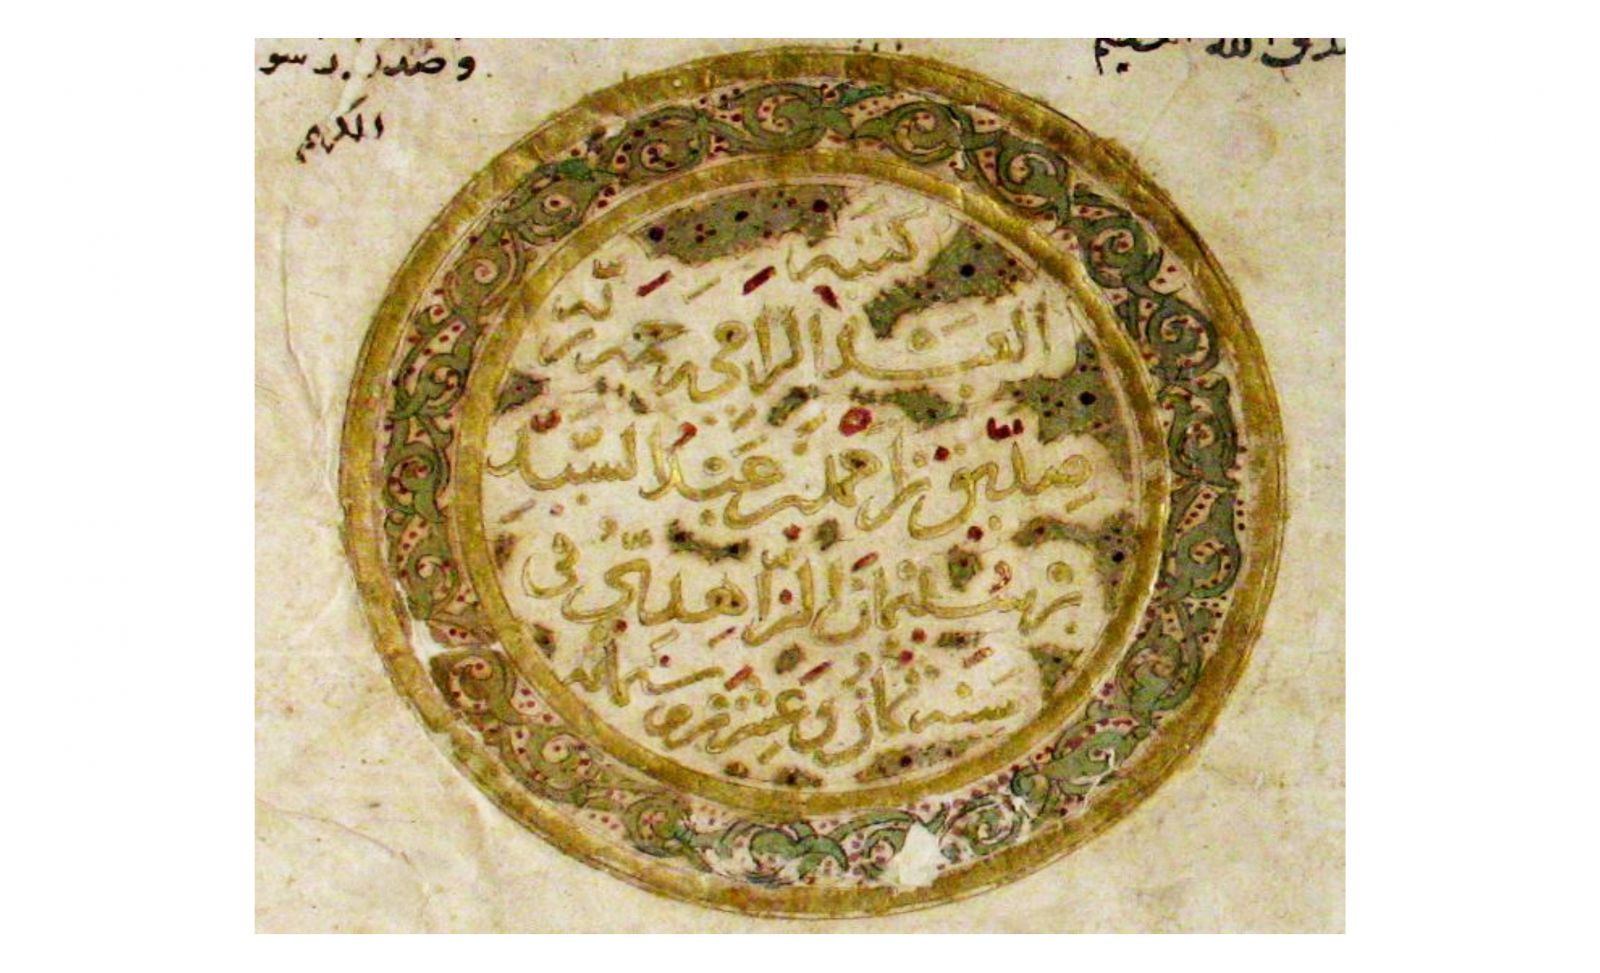 صدق الله العظيم
وصدق رسو
الكريم
كتبه
العبد الراجي رحمة ربه
صديق بن احمد بن عبد السيد
بن سليمان الزاهدي في
سنة ثمان وعشرين وستمائة